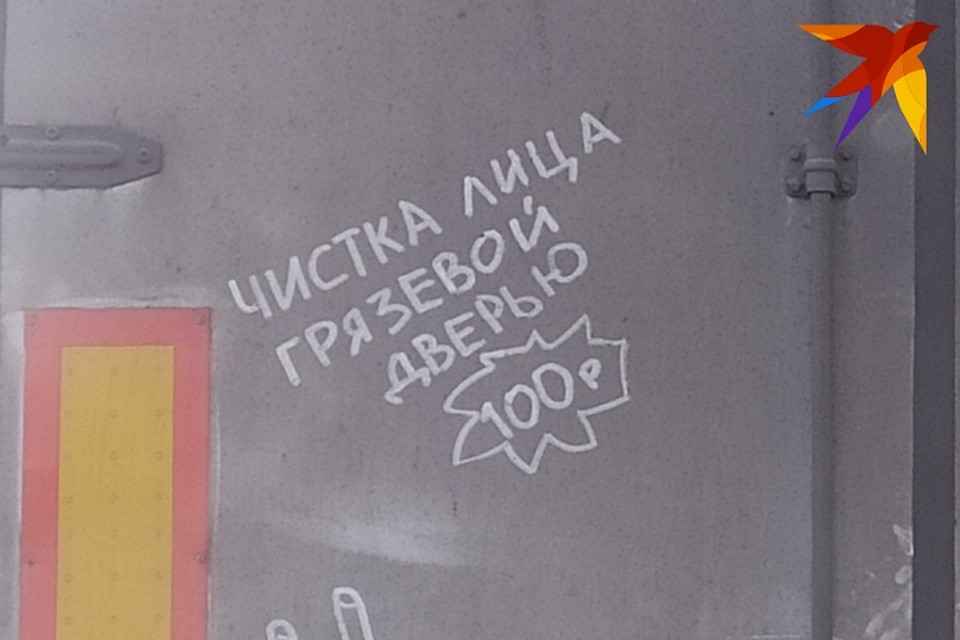 ЧИСТКА ЛИЦА
ГРЯЗЕВОЙ
ДВЕРЬЮ
100Р